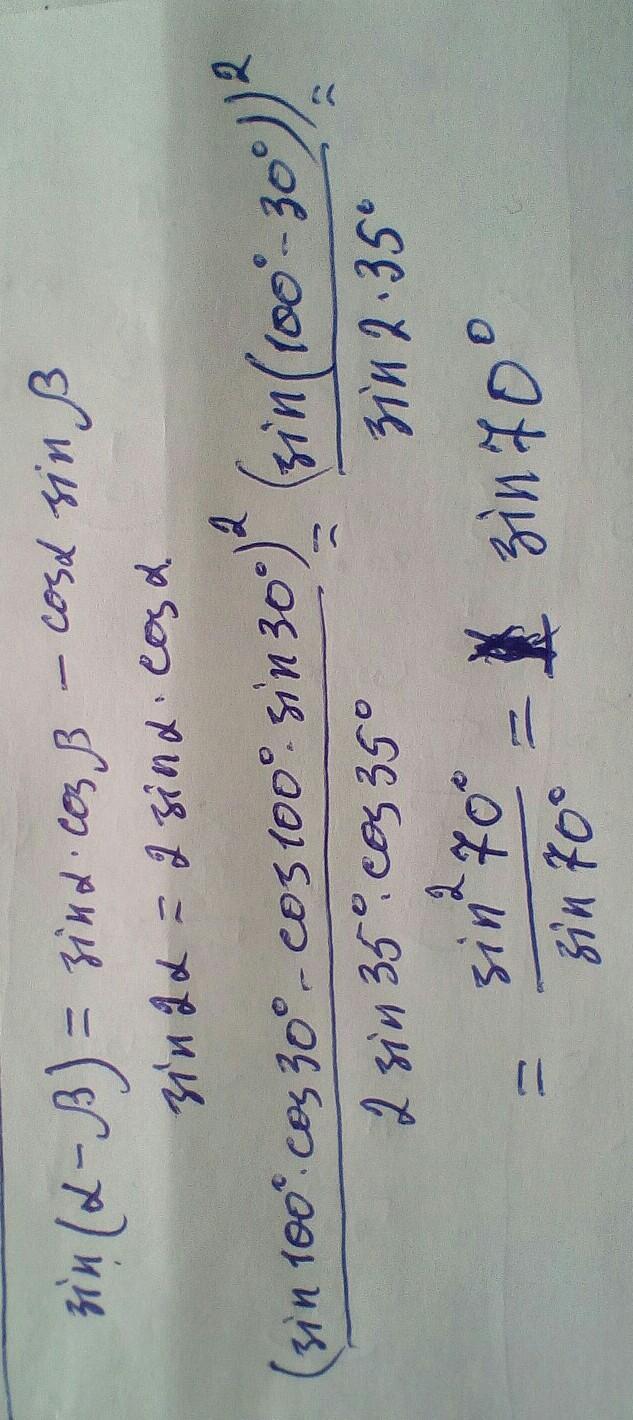 sin(α-β) = sinα·cosβ - cosα sinβ
sin2α = 2 sinα·cosα
(sin100°·cos30° - cos100°·sin30°)² / 2 sin35°·cos35° = (sin(100°-30°))² / sin2·35° =
= sin²70° / sin70° = sin70°